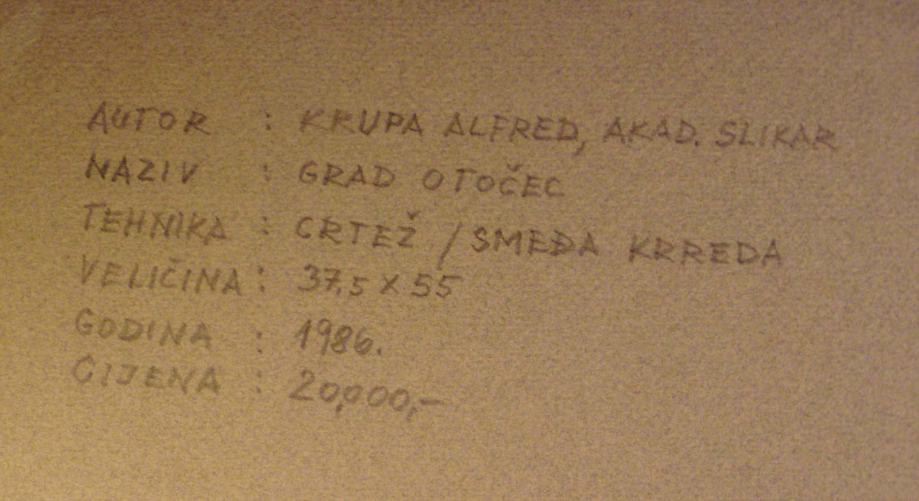 AUTOR : KRUPA ALFRED, AKAD. SLIKAR
NAZIV : GRAD OTOČEC
TEHNIKA : CRTEŽ / SMEĐA KRREDA
VELIČINA : 37,5 X 55
GODINA : 1986.
CIJENA : 20,000,-